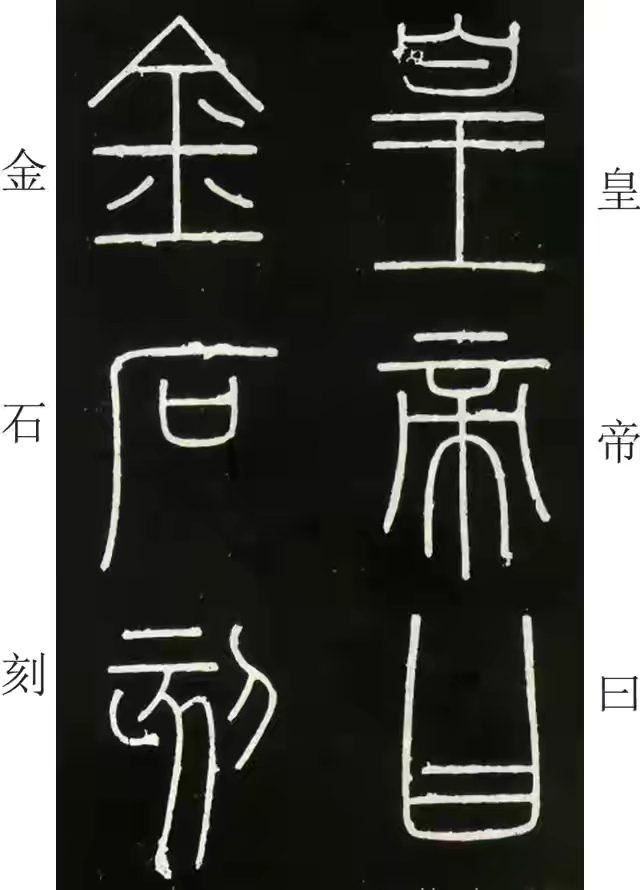 皇帝曰
金石刻
皇帝曰
金石刻